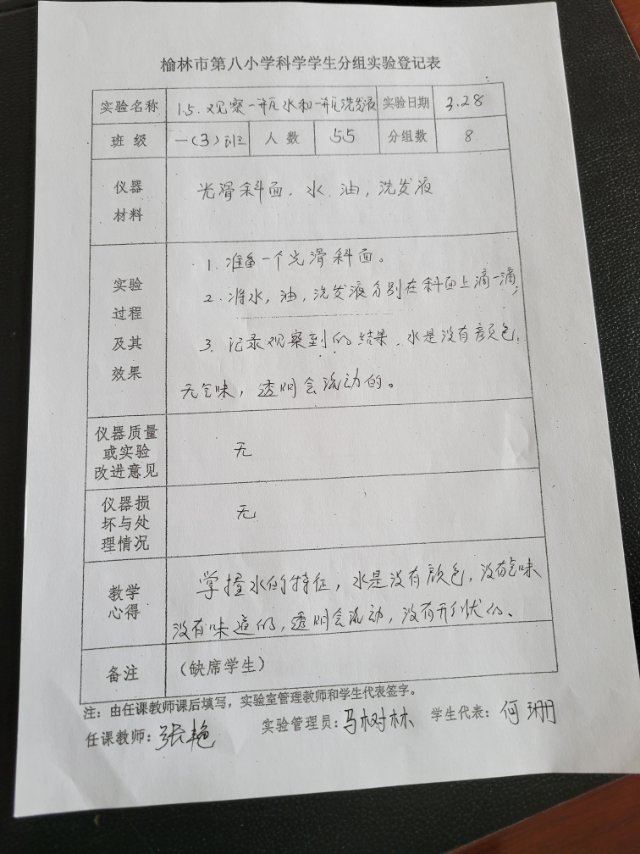 榆林市第八小学科学学生分组实验登记表
实验名称 15.观察一瓶水和一瓶洗发液 实验日期 3.28
班级 一(3)班 人数 55 分组数 8
仪器材料 光滑斜面、水、油、洗发液
实验过程及其效果
1. 准备一个光滑斜面。
2. 将水,油,洗发液分别在斜面上滴一滴;
3. 记录观察到的结果,水是没有颜色,
无气味,透明会流动的。
仪器质量或实验改进意见 无
仪器损坏与处理情况 无
教学心得 掌握水的特征,水是没有颜色,没有气味
没有味道的,透明会流动,没有形状的、
备注 (缺席学生)
注:由任课教师课后填写,实验室管理教师和学生代表签字。
任课教师:张艳 实验管理员:马树林 学生代表:何珊